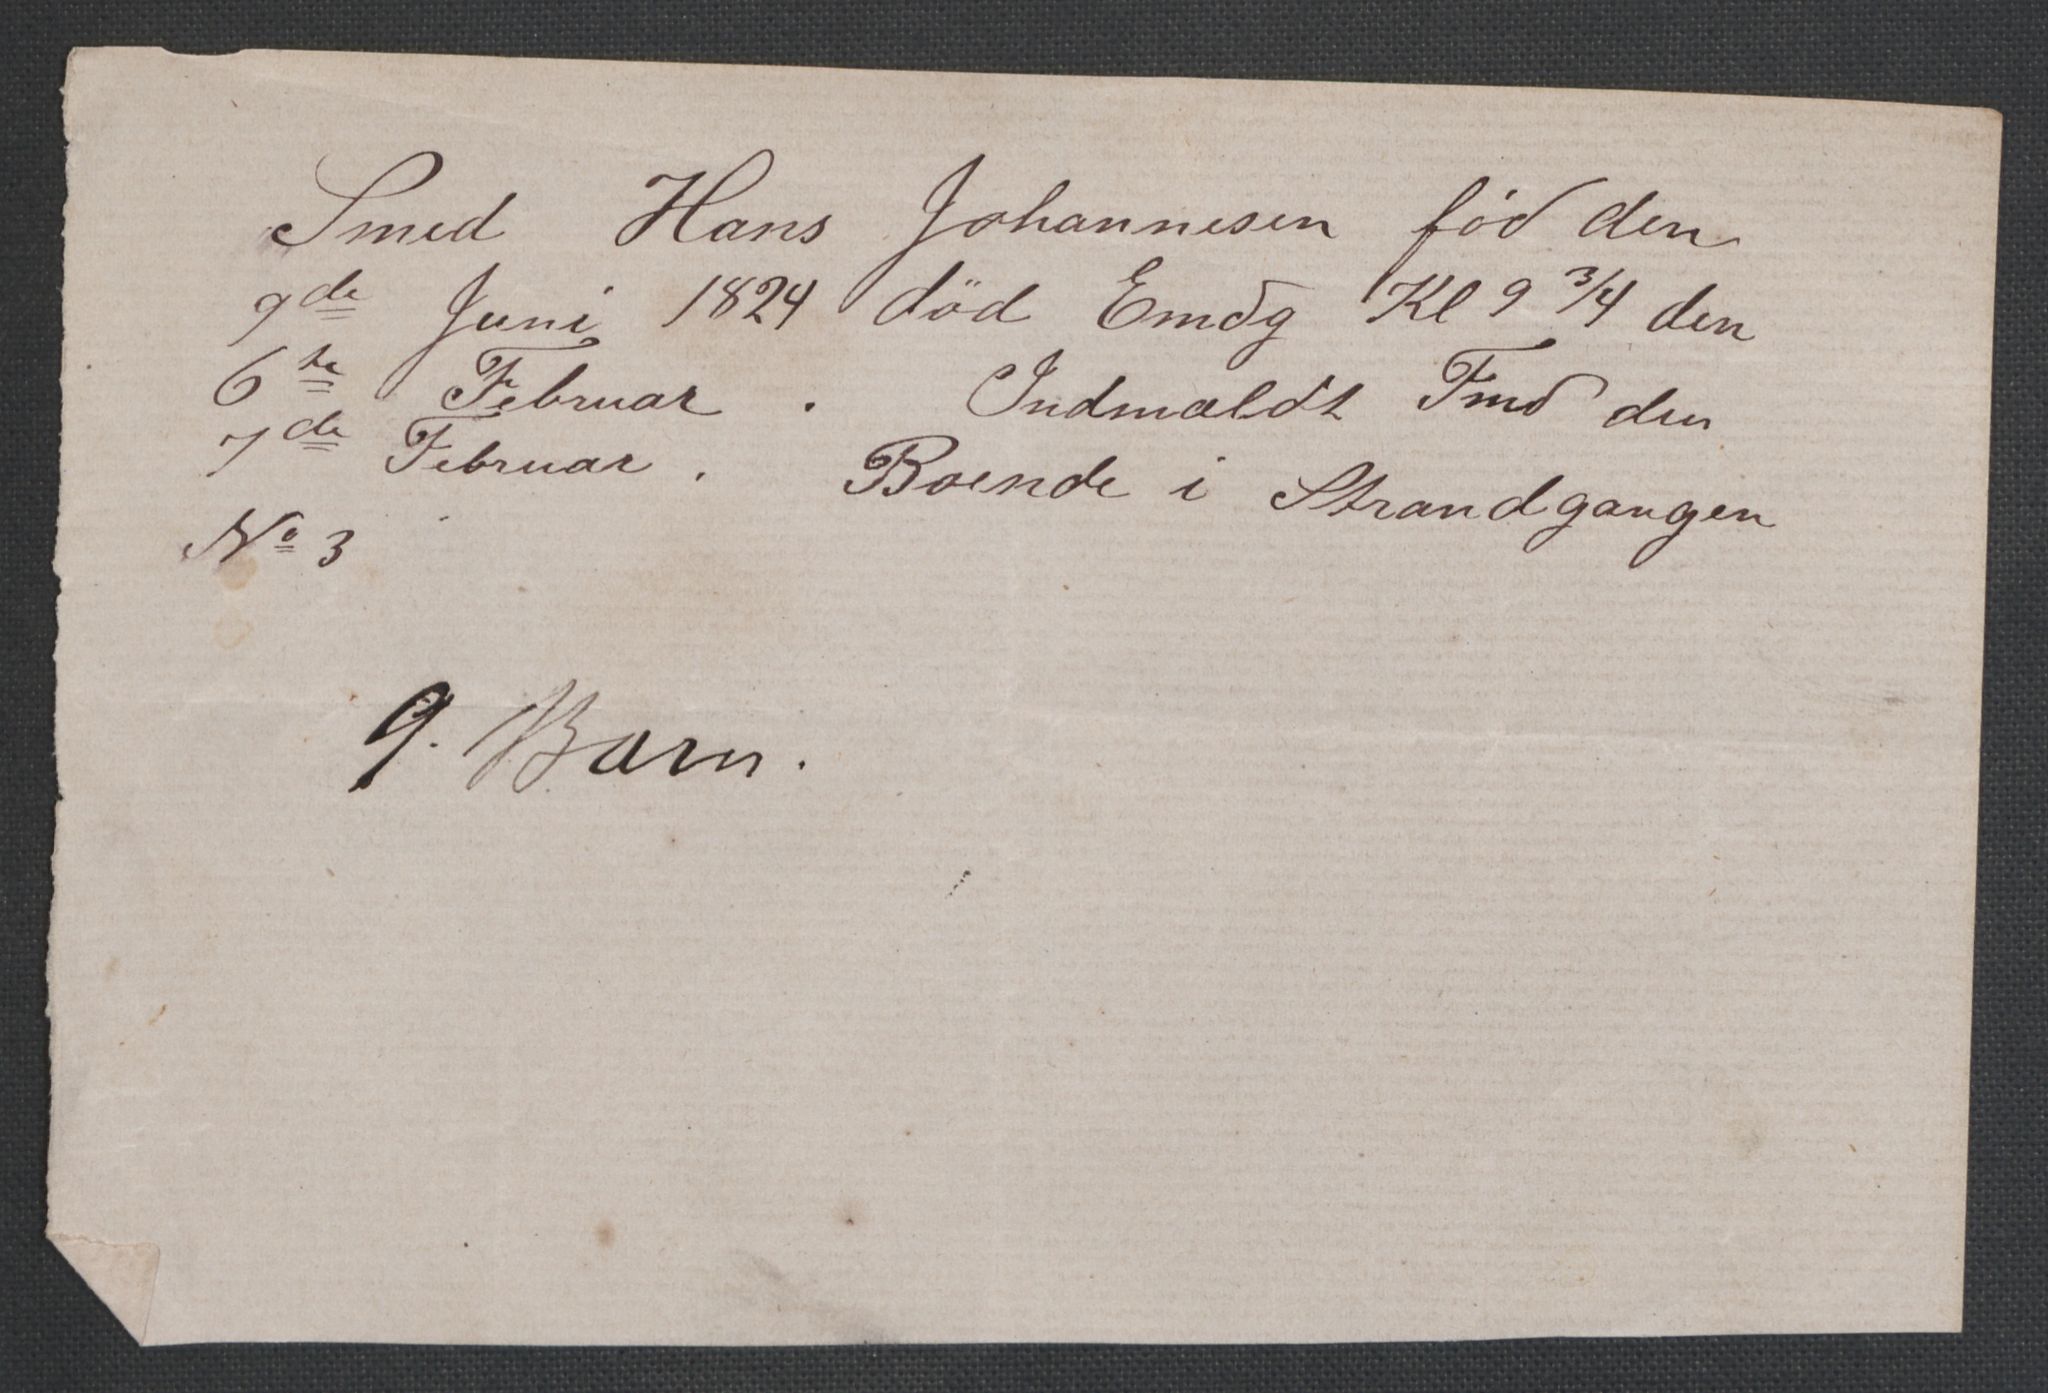 Smed Hans Johannesen föd den
9de Juni 1824 död Emdg Kl 9 3/4 den
6te Februar. Indmældt Fmd den
7de Februar. Boende i Strandgangen
No 3
9. Børn.